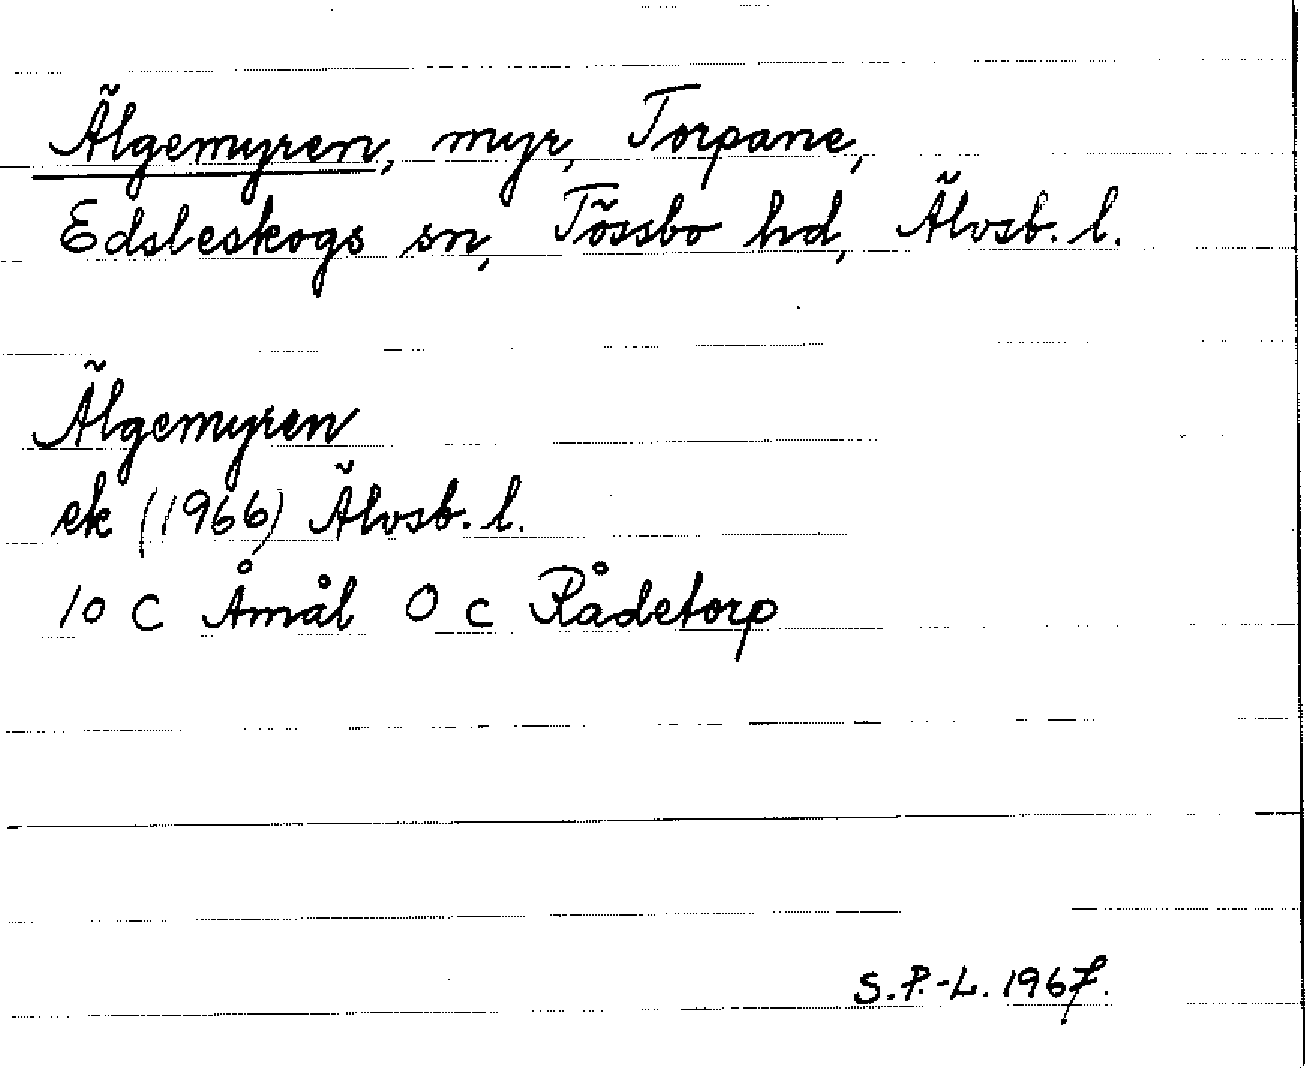 Älgemyren, myr, Torpane,
Edsleskogs sn, Tössbo hd, Älvsb. l.
Älgemyren
ek (1966) Älvsb. l.
10 C Åmål 0 c Rådetorp
S.P.-L. 1967.